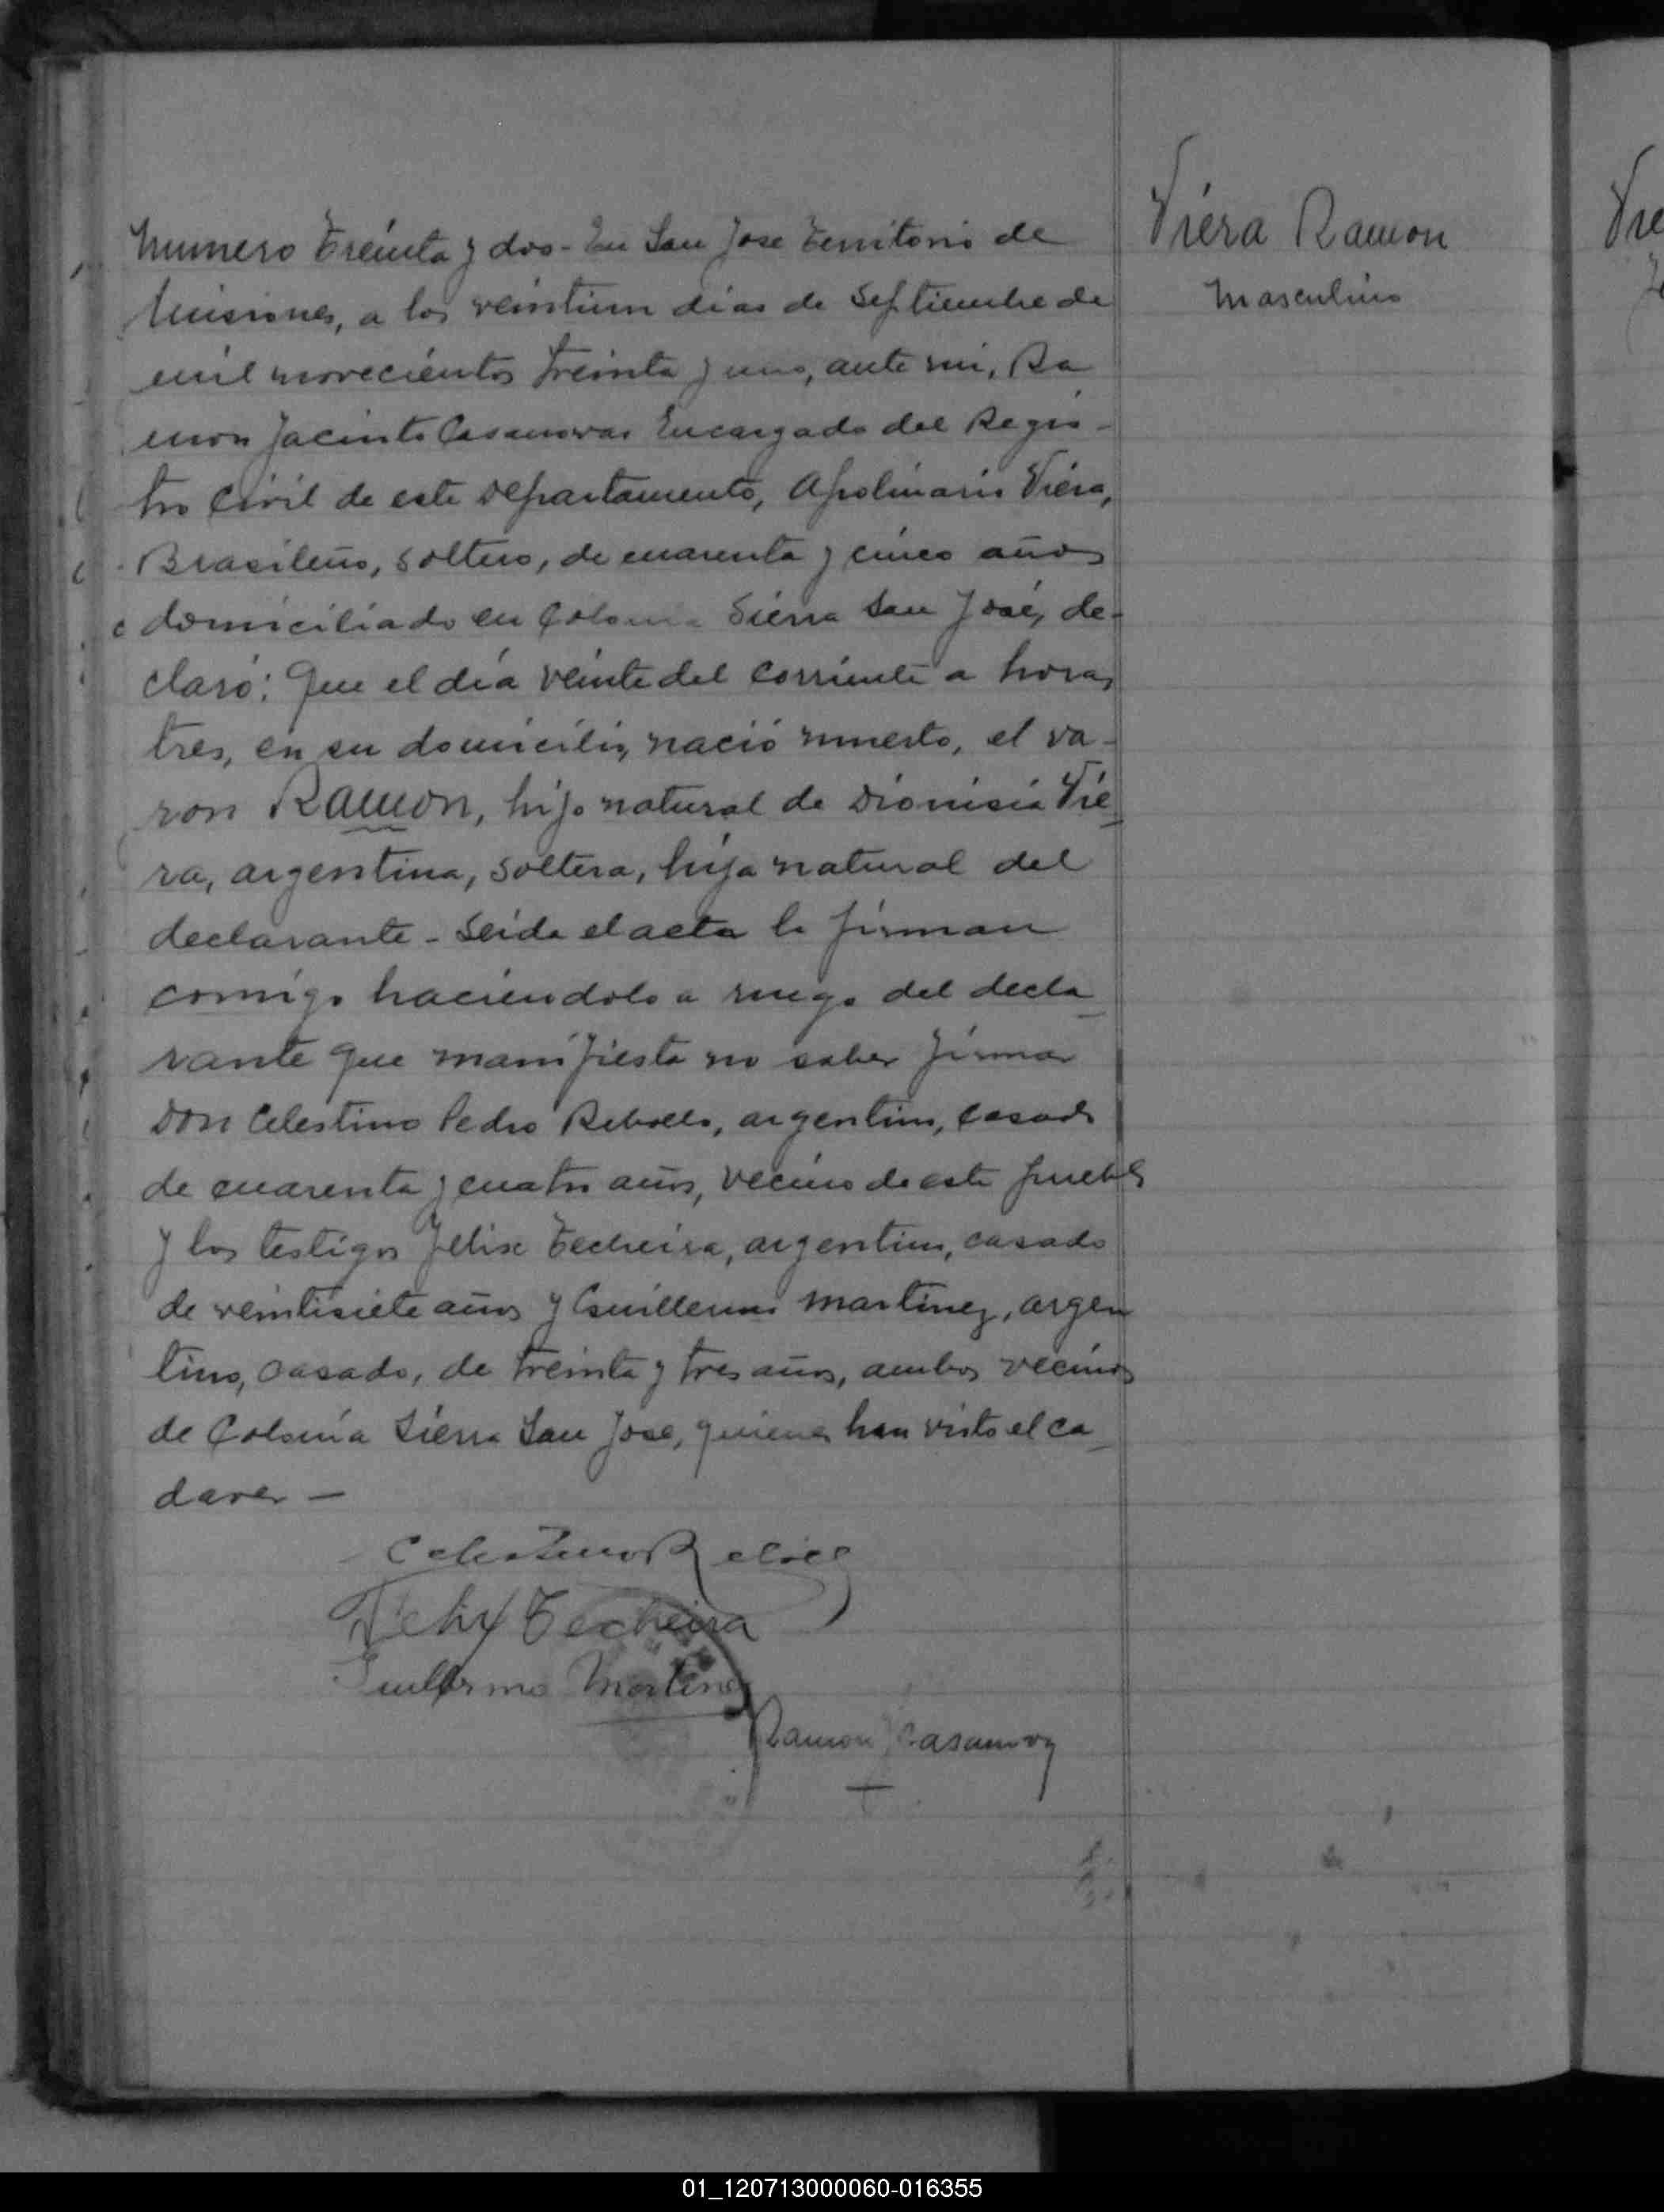 Numero Treinta y dos - En San Jose Territorio de
Misiones, a los veintiun dias de Septiembre de
mil novecientos treinta y uno, ante mi, Ra
mon Jacinto Casanovas Encargado del Regis-
tro Civil de este Departamento, Apolinario Viera,
Brasileño, soltero, de cuarenta y cinco años
domiciliado en Colonia Sierra San José, de-
claró: Que el día veinte del corriente a horas
tres, en su domicilio, nació muerto, el va-
ron Ramon, hijo natural de Dionisia Vie
ra, argentina, soltera, hija natural del
declarante - Leida el acta la firman
conmigo haciendolo a ruego del decla
rante que manifiesta no saber firmar
Don Celestino Pedro Rebollo, argentino, casado
de cuarenta y cuatro años, vecino de este pueblo
y los testigos Felix Techeira, argentino, casado
de veintisiete años y Guillermo Martinez, argen
tino, casado, de treinta y tres años, ambos vecinos
de Colonia Sierra San Jose, quienes han visto el ca
daver -
Celestino
Felix Techeira
Guillermo Martinez
Ramon J Casanovas
Viera Ramon
Masculino
Vie
01_120713000060-016355